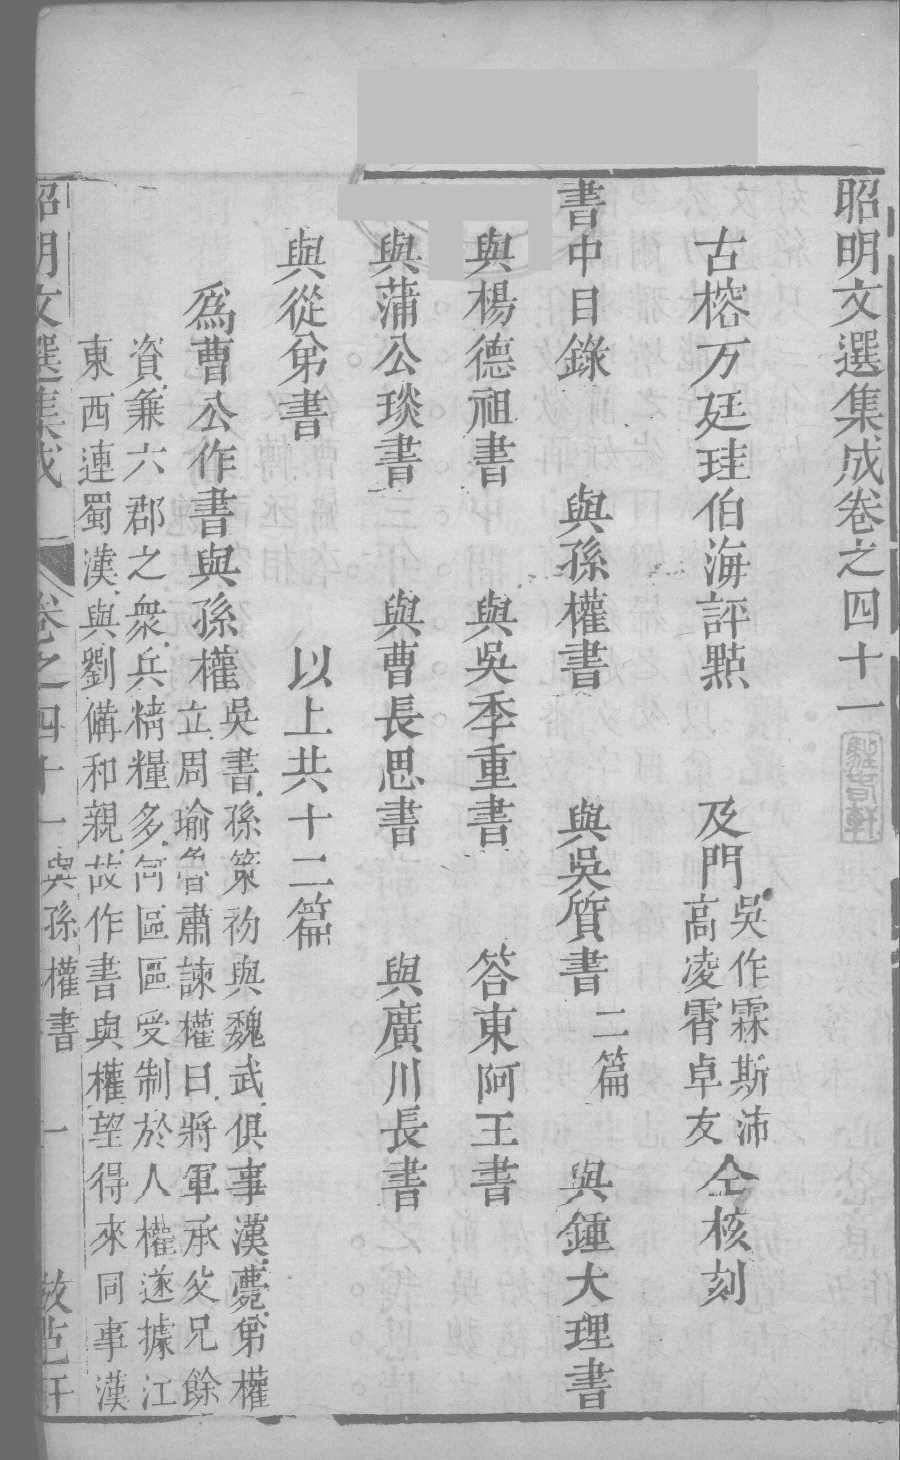 昭明文選集成卷之四十一
古榕方廷珪伯海評點
及門
吳作霖斯沛
高凌霄卓友
仝校刻
書中目錄
與孫權書
與吳質書
二篇
與鍾大理書
與楊德祖書
與吳季重書
答東阿王書
與蒲公琰書
與曹長思書
與廣川長書
與從弟書
以上共十二篇
爲曹公作書與孫權
吳書孫策初與魏武俱事漢薨弟權
立周瑜魯肅諫權曰將軍承父兄餘
資兼六郡之衆兵精糧多何區區受制於人權遂據江
東西連蜀漢與劉備和親故作書與權望得來同事漢
昭明文選集成
卷之四十一
與孫權書
一